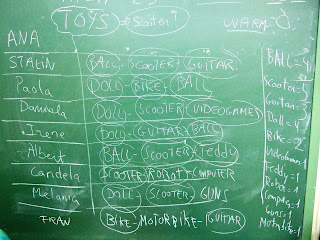 TOYS
Scooter?
WARM
ANA
STALIN BALL - SCOOTER - GUITAR
Paola DOLL - BIKE - BALL
Daniela DOLL - SCOOTER - VIDEOGAMES
Irene DOLL - GUITAR - BALL
Albert BALL - SCOOTER - TEDDY
Candela SCOOTER - ROBOT - COMPUTER
Melania DOLL - SCOOTER - GUNS
FRAN BIKE - MOTORBIKE - GUITAR
BALL = 4
Scooter = 5
Guitar = 3
Doll = 4
Bike = 2
Videogames = 1
Teddy = 1
Robot = 1
Computer = 1
Guns = 1
Motorbike = 1